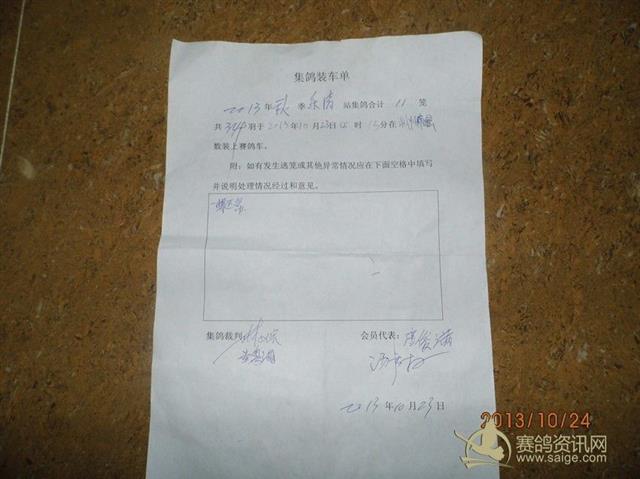 集鸽装车单
2013年秋季乐清站集鸽合计11笼
共324羽于2013年10月23日 时15分在
数装上赛鸽车。
附：如有发生逃笼或其他异常情况应在下面空格中填写
并说明处理情况经过和意见。
一切正常
集鸽裁判: 会员代表:
2013年10月23日
2013/10/24
赛鸽资讯网
www.saige.com